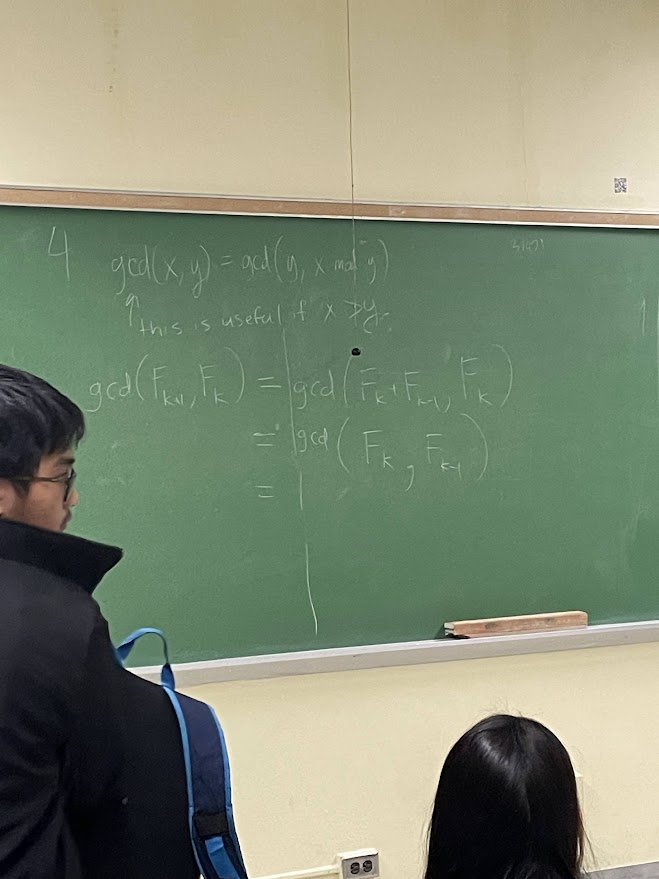 4 gcd(x, y) = gcd(y, x mod y)
↑ this is useful if x > y.
gcd(F_{k+1}, F_k) = gcd(F_k + F_{k-1}, F_k)
= gcd(F_k, F_{k-1})
= 1